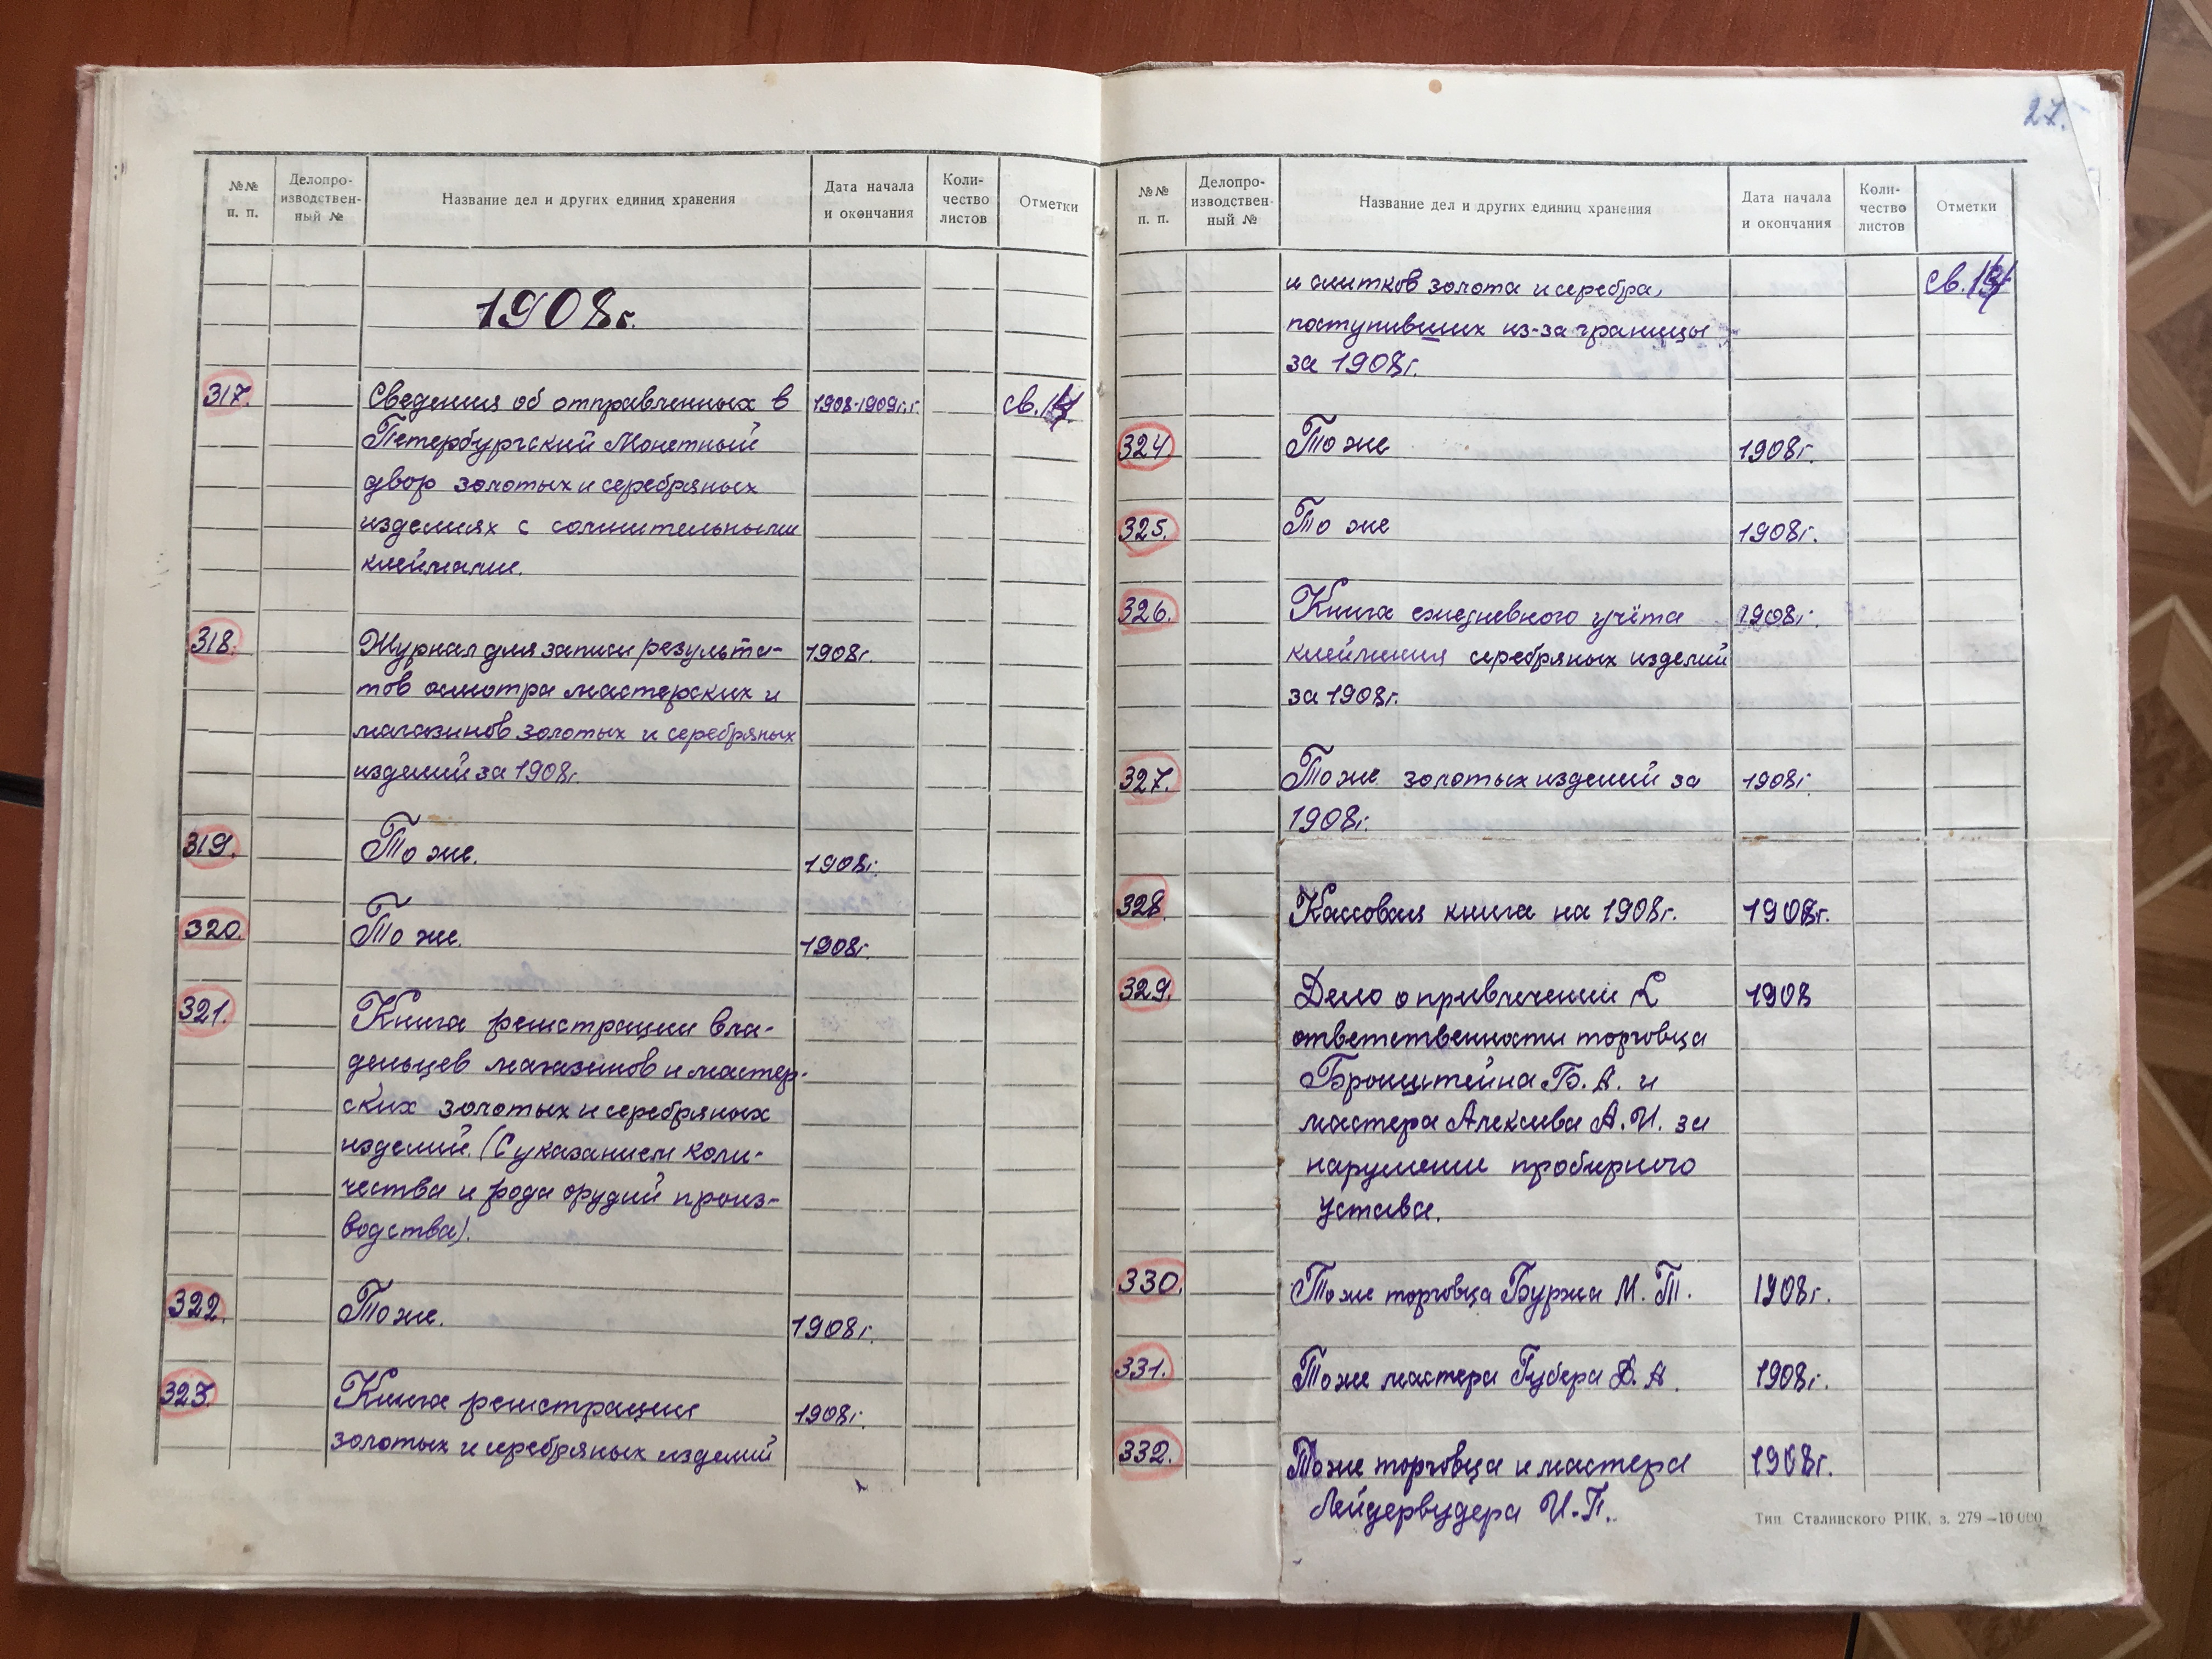 №№ п. п.
Делопро-
изводствен-
ный №
Название дел и других единиц хранения
Дата начала
и окончания
Коли-
чество
листов
Отметки
1908г.
317. Сведения об отправленных в 1908-1909г.г. св.
Петербургский Монетный
двор золотых и серебряных
изделиях с сомнительными
клеймами.
318. Журнал для записи результа- 1908г.
тов осмотра мастерских и
магазинов золотых и серебряных
изделий за 1908г.
319. То же. 1908г.
320. То же. 1908г.
321. Книга регистрации вла-
дельцев магазинов и мастер-
ских золотых и серебряных
изделий. (С указанием коли-
чества и рода орудий произ-
водства).
322. То же. 1908г.
323. Книга регистрации 1908г.
золотых и серебряных изделий
27.
№№ п. п.
Делопро-
изводствен-
ный №
Название дел и других единиц хранения
Дата начала
и окончания
Коли-
чество
листов
Отметки
и слитков золота и серебра, св.
поступивших из-за границы
за 1908г.
324. То же 1908г.
325. То же 1908г.
326. Книга ежедневного учёта 1908г.
клеймения серебряных изделий
за 1908г.
327. То же золотых изделий за 1908г.
1908г.
328. Кассовая книга на 1908г. 1908г.
329. Дело о привлечении к 1908
ответственности торговца
Бронштейна Б. А. и
мастера Алексеева А. И. за
нарушение пробирного
устава.
330. То же торговца Буржа М. Т. 1908г.
331. То же мастера Губера А. 1908г.
332. То же торговца и мастера 1908г.
Лейдервудера И. П.
Тип. Сталинского РПК, з. 279—10 000